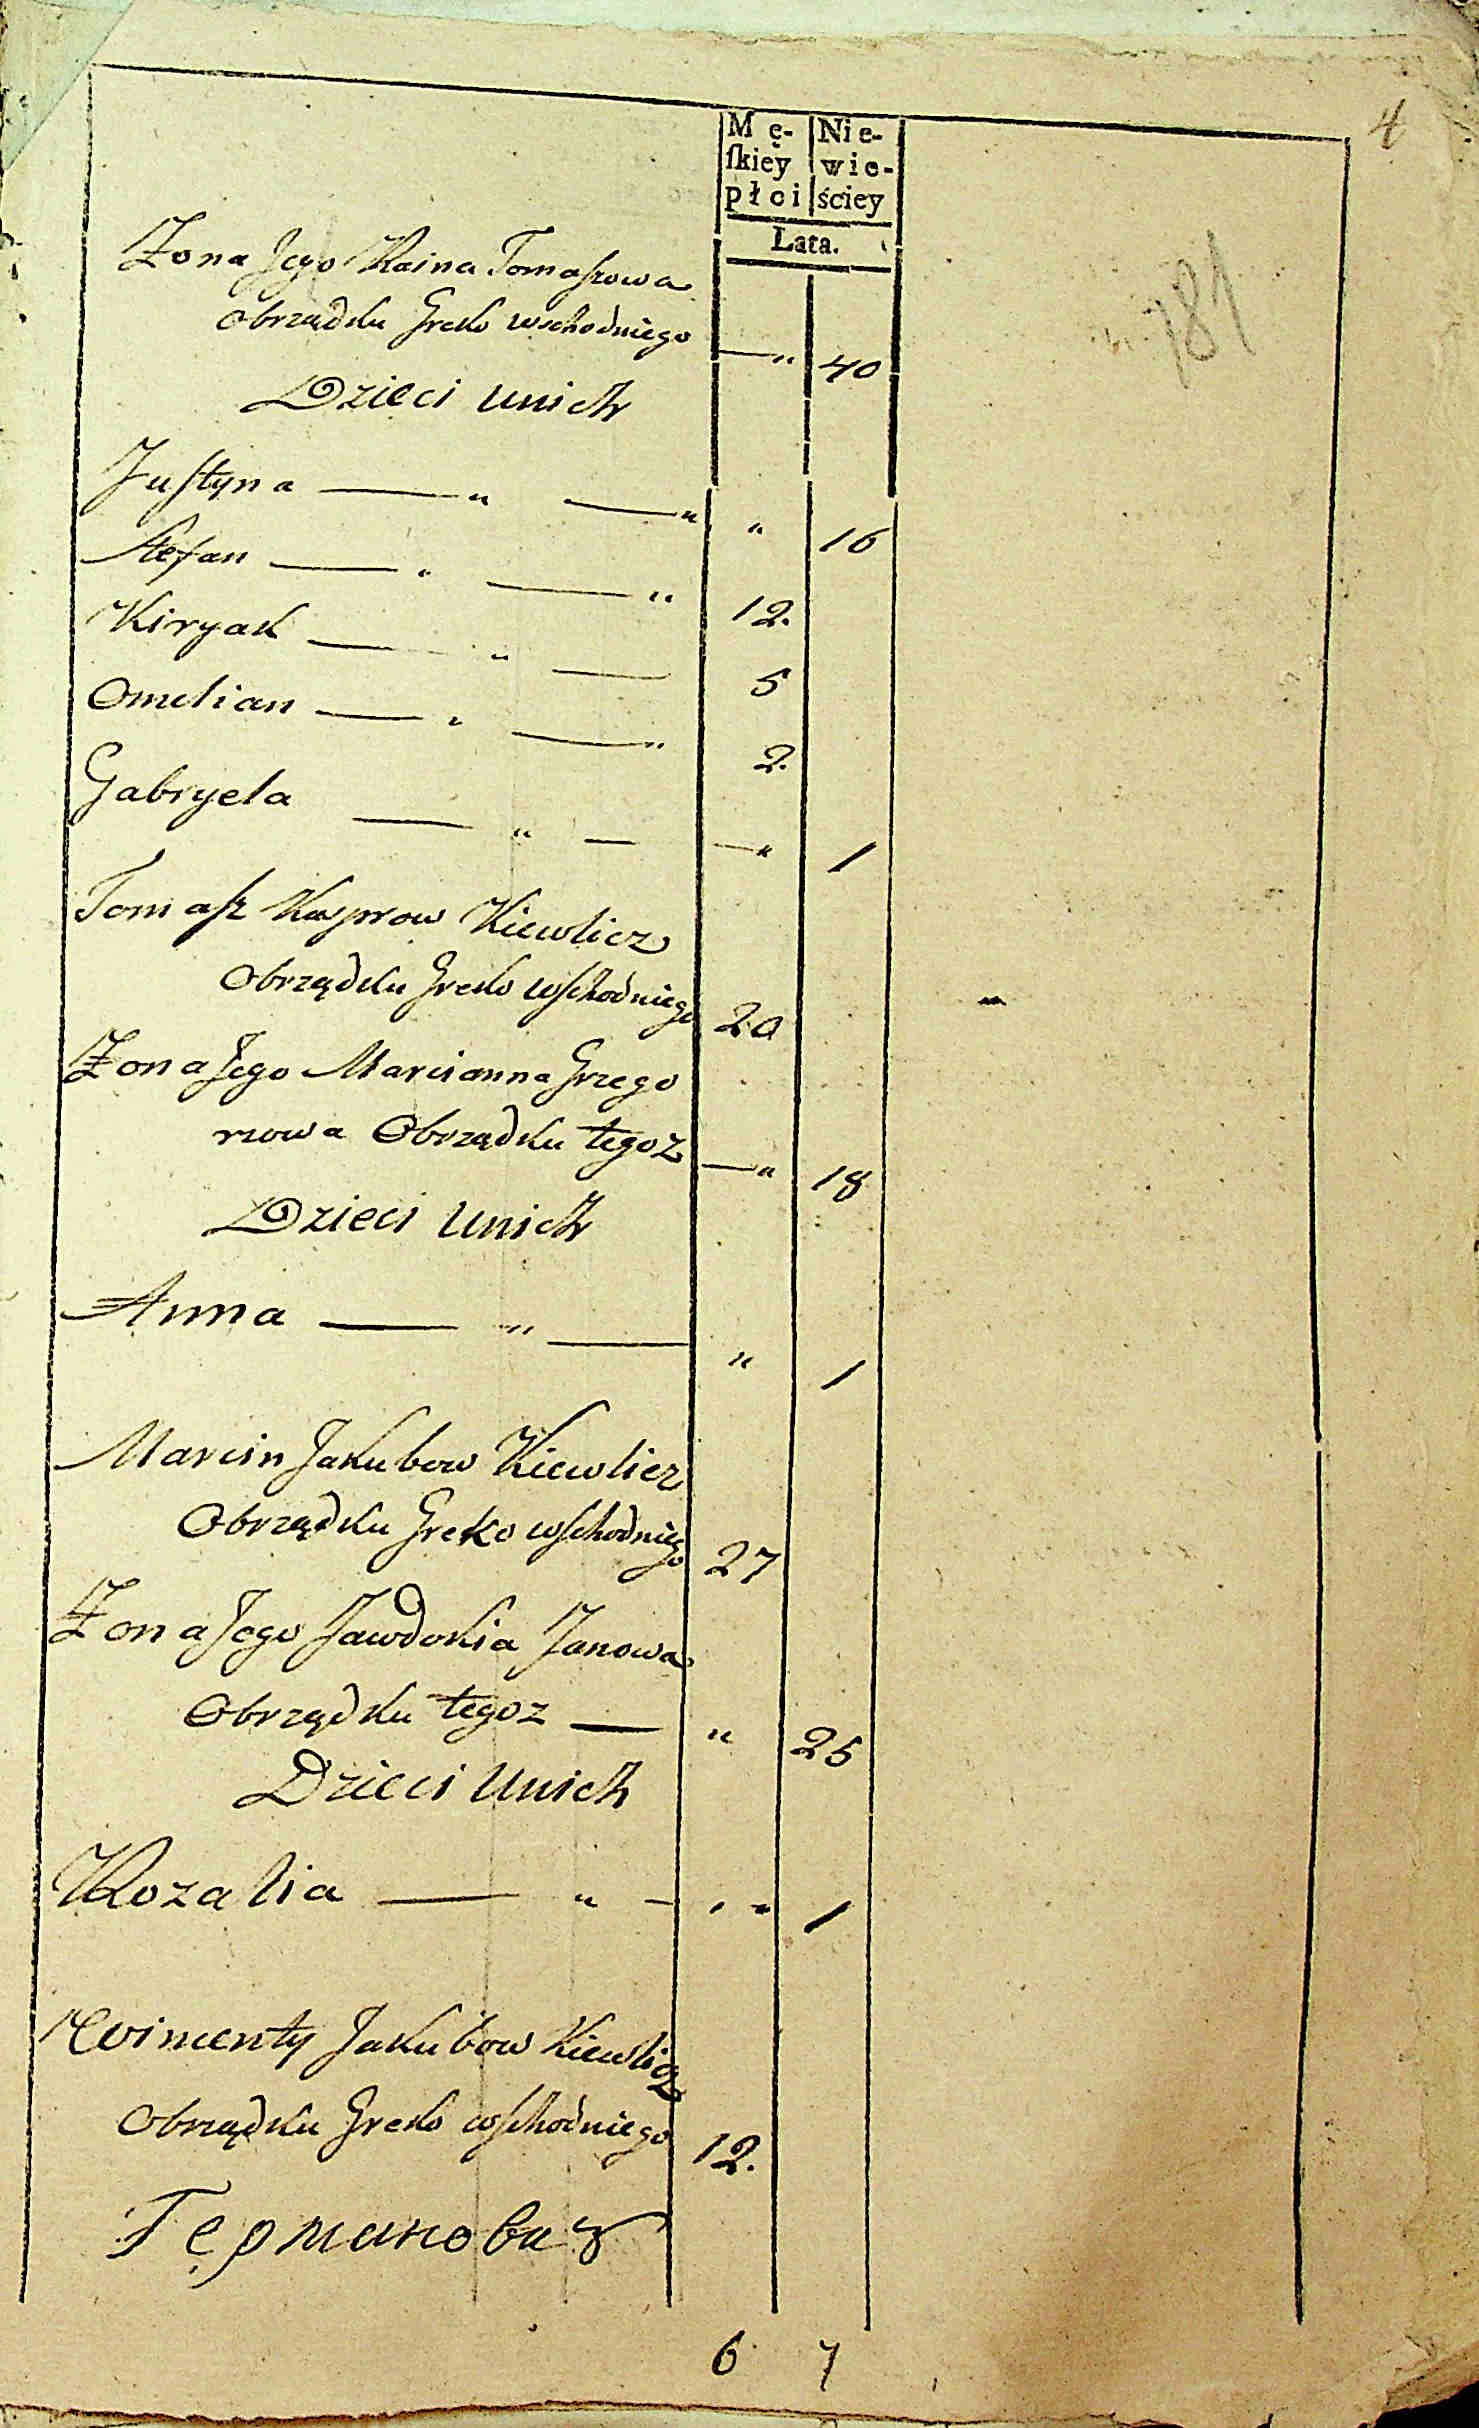 4
Mę- Nie-
ſkiey wie-
płci ściey
Lata.
781
Żona Jego Raina Tomaſzowa
Obrządku Greko wschodniego —" 40
Dzieci u nich
Juſtyna —" —" " 16
Stefan —" —" 12.
Kiryak —" — 5
Omelian —" —" 2.
Gabryela —" — —" 1
Tomaſz Kasprow Kiewlicz
Obrządku Greko wſchodniego 20
Żona Jego Marcianna Grzego
rzowa Obrządku tegoz —" 18
Dzieci u nich
Anna —" — " 1
Marcin Jakubow Kiewlicz
Obrządku Greko wſchodniego 27
Żona Jego Jawdokia Janowa
Obrządku tegoz — " 25
Dzieci u nich
Rozalia —" — " 1
Wincenty Jakubow Kiewlicz
Obrządku Greko wſchodniego 12.
Германович
6 7